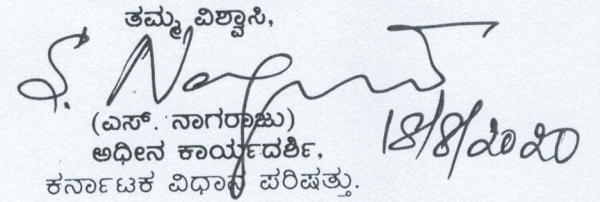 ತಮ್ಮ ವಿಶ್ವಾಸಿ,
S. Nagaraj
(ಎಸ್. ನಾಗರಾಜು) 18/8/2020
ಅಧೀನ ಕಾರ್ಯದರ್ಶಿ,
ಕರ್ನಾಟಕ ವಿಧಾನ ಪರಿಷತ್ತು.